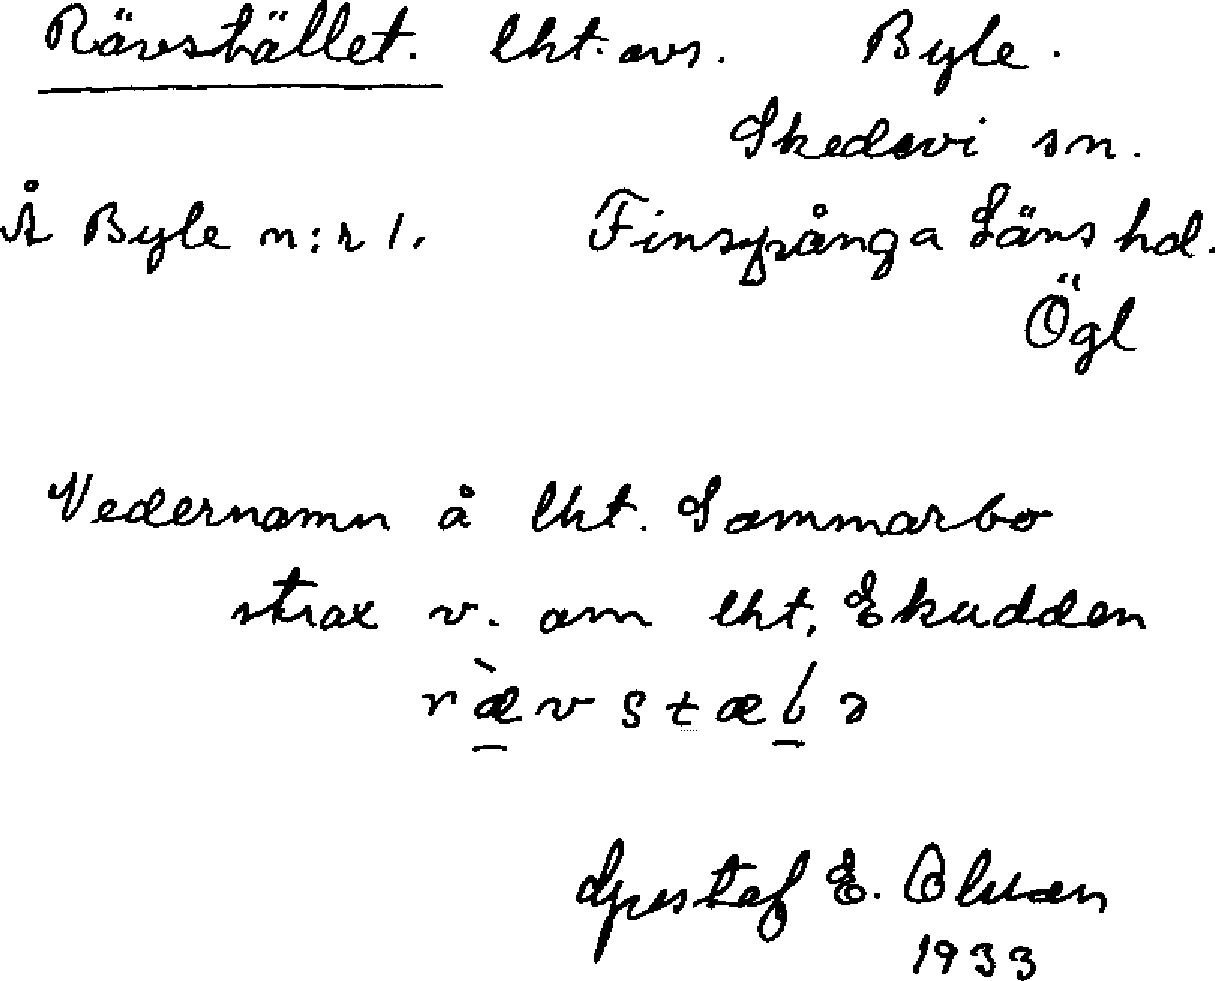 Rävstället. lht. avs. Byle.
Skedevi sn.
Å Byle n:r 1. Finspånga Läns hd.
Ögl
Vedernamn å lht. Sommarbo
strax v. om lht. Ekudden
ræ̀vstælə
Gustaf E. Olsson
1933